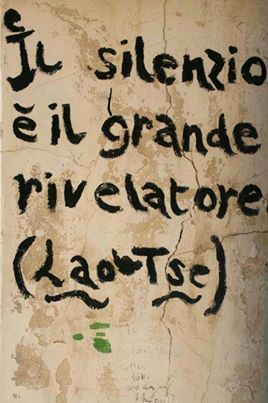 e
Il silenzio
è il grande
rivelatore
(Lao Tse)